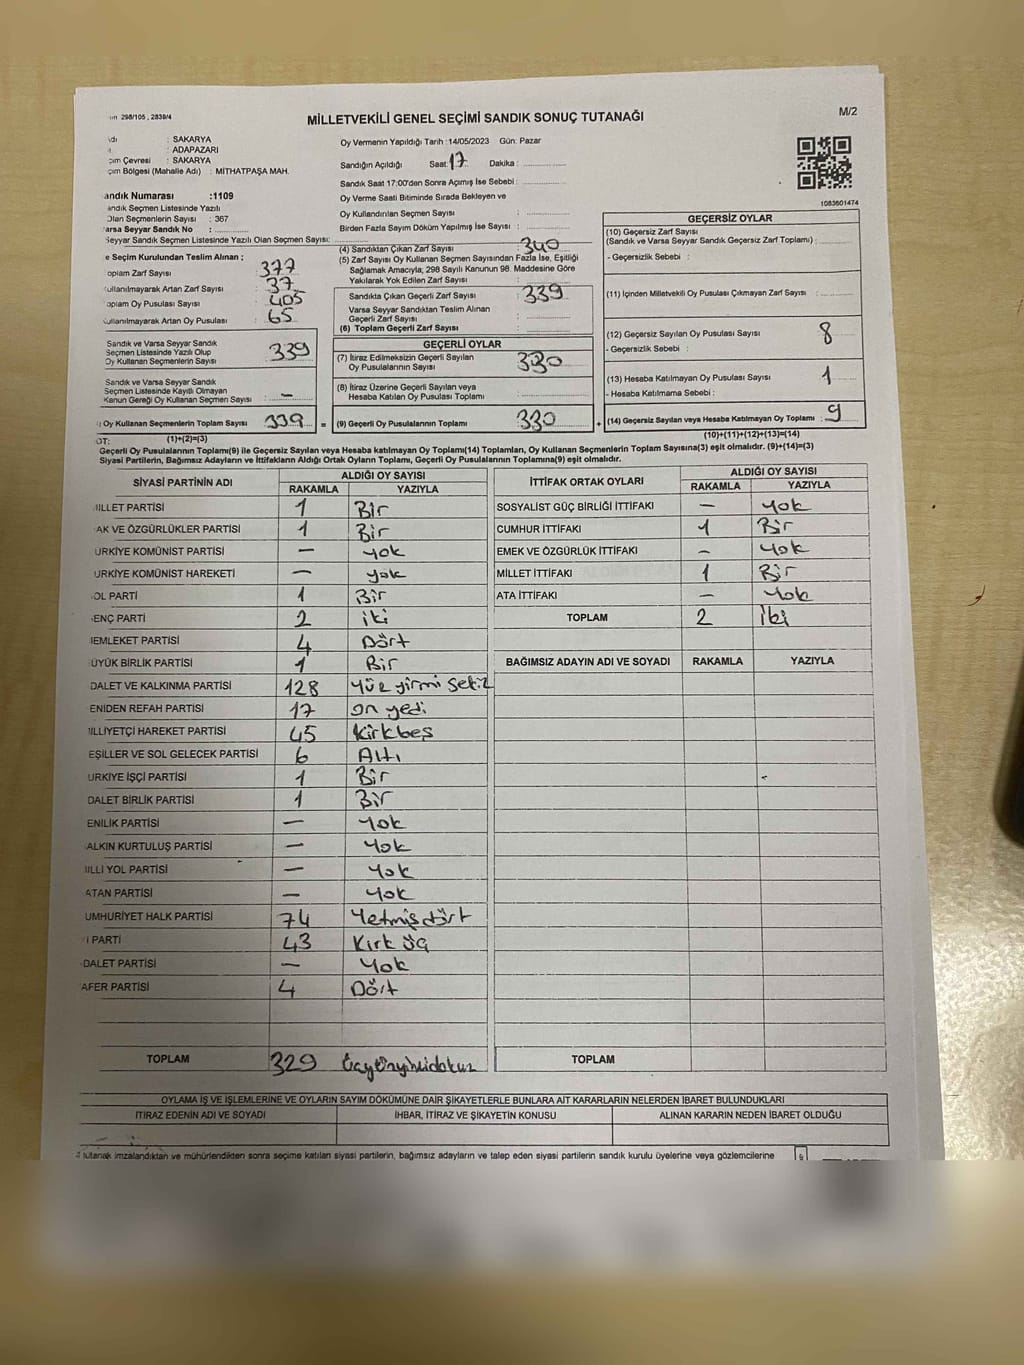 298/105 , 2839/4
MİLLETVEKİLİ GENEL SEÇİMİ SANDIK SONUÇ TUTANAĞI
M/2
: SAKARYA
: ADAPAZARI
çim Çevresi : SAKARYA
çim Bölgesi (Mahalle Adı) : MİTHATPAŞA MAH.
Oy Vermenin Yapıldığı Tarih :14/05/2023 Gün: Pazar
Sandığın Açıldığı Saat: 17 Dakika :
Sandık Saat 17:00'den Sonra Açımış İse Sebebi :
Oy Verme Saati Bitiminde Sırada Bekleyen ve
Oy Kullandırılan Seçmen Sayısı :
Birden Fazla Sayım Döküm Yapılmış İse Sayısı :
1083601474
andık Numarası :1109
andık Seçmen Listesinde Yazılı
Olan Seçmenlerin Sayısı : 367
arsa Seyyar Sandık No :
Seyyar Sandık Seçmen Listesinde Yazılı Olan Seçmen Sayısı:
e Seçim Kurulundan Teslim Alınan ;
oplam Zarf Sayısı : 377
ullanılmayarak Artan Zarf Sayısı : 37
oplam Oy Pusulası Sayısı : 405
ullanılmayarak Artan Oy Pusulası : 65
Sandık ve Varsa Seyyar Sandık
Seçmen Listesinde Yazılı Olup
Oy Kullanan Seçmenlerin Sayısı : 339
Sandık ve Varsa Seyyar Sandık
Seçmen Listesinde Kayıtlı Olmayan
Kanun Gereği Oy Kullanan Seçmen Sayısı : —
) Oy Kullanan Seçmenlerin Toplam Sayısı : 339 =
(1)+(2)=(3)
(4) Sandıktan Çıkan Zarf Sayısı : 340
(5) Zarf Sayısı Oy Kullanan Seçmen Sayısından Fazla İse, Eşitliği
Sağlamak Amacıyla; 298 Sayılı Kanunun 98. Maddesine Göre
Yakılarak Yok Edilen Zarf Sayısı :
Sandıkta Çıkan Geçerli Zarf Sayısı : 339
Varsa Seyyar Sandıktan Teslim Alınan
Geçerli Zarf Sayısı :
(6) Toplam Geçerli Zarf Sayısı :
GEÇERLİ OYLAR
(7) İtiraz Edilmeksizin Geçerli Sayılan
Oy Pusulalarının Sayısı : 330
(8) İtiraz Üzerine Geçerli Sayılan veya
Hesaba Katılan Oy Pusulası Toplamı :
(9) Geçerli Oy Pusulalarının Toplamı : 330 +
GEÇERSİZ OYLAR
(10) Geçersiz Zarf Sayısı
(Sandık ve Varsa Seyyar Sandık Geçersiz Zarf Toplamı) :
- Geçersizlik Sebebi :
(11) İçinden Milletvekili Oy Pusulası Çıkmayan Zarf Sayısı :
(12) Geçersiz Sayılan Oy Pusulası Sayısı : 8
- Geçersizlik Sebebi :
(13) Hesaba Katılmayan Oy Pusulası Sayısı : 1
- Hesaba Katılmama Sebebi :
(14) Geçersiz Sayılan veya Hesaba Katılmayan Oy Toplamı : 9
(10)+(11)+(12)+(13)=(14)
OT:
Geçerli Oy Pusulalarının Toplamı(9) ile Geçersiz Sayılan veya Hesaba katılmayan Oy Toplamı(14) Toplamları, Oy Kullanan Seçmenlerin Toplam Sayısına(3) eşit olmalıdır. (9)+(14)=(3)
Siyasi Partilerin, Bağımsız Adayların ve İttifakların Aldığı Ortak Oyların Toplamı, Geçerli Oy Pusulalarının Toplamına(9) eşit olmalıdır.
SİYASİ PARTİNİN ADI ALDIĞI OY SAYISI
RAKAMLA YAZIYLA
İLLET PARTİSİ 1 Bir
AK VE ÖZGÜRLÜKLER PARTİSİ 1 Bir
ÜRKİYE KOMÜNİST PARTİSİ — yok
ÜRKİYE KOMÜNİST HAREKETİ — yok
OL PARTİ 1 Bir
ENÇ PARTİ 2 iki
EMLEKET PARTİSİ 4 Dört
ÜYÜK BİRLİK PARTİSİ 1 Bir
DALET VE KALKINMA PARTİSİ 128 Yüz yirmi sekiz
ENİDEN REFAH PARTİSİ 17 on yedi
İLLİYETÇİ HAREKET PARTİSİ 45 Kırkbeş
EŞİLLER VE SOL GELECEK PARTİSİ 6 Altı
ÜRKİYE İŞÇİ PARTİSİ 1 Bir
DALET BİRLİK PARTİSİ 1 Bir
ENİLİK PARTİSİ — Yok
ALKIN KURTULUŞ PARTİSİ — Yok
İLLİ YOL PARTİSİ — Yok
ATAN PARTİSİ — Yok
UMHURİYET HALK PARTİSİ 74 Yetmiş dört
İ PARTİ 43 Kırk üç
DALET PARTİSİ — Yok
AFER PARTİSİ 4 Dört
TOPLAM 329
İTTİFAK ORTAK OYLARI ALDIĞI OY SAYISI
RAKAMLA YAZIYLA
SOSYALİST GÜÇ BİRLİĞİ İTTİFAKI — Yok
CUMHUR İTTİFAKI 1 Bir
EMEK VE ÖZGÜRLÜK İTTİFAKI — Yok
MİLLET İTTİFAKI 1 Bir
ATA İTTİFAKI — Yok
TOPLAM 2 İki
BAĞIMSIZ ADAYIN ADI VE SOYADI RAKAMLA YAZIYLA
TOPLAM
OYLAMA İŞ VE İŞLEMLERİNE VE OYLARIN SAYIM DÖKÜMÜNE DAİR ŞİKAYETLERLE BUNLARA AİT KARARLARIN NELERDEN İBARET BULUNDUKLARI
İTİRAZ EDENİN ADI VE SOYADI İHBAR, İTİRAZ VE ŞİKAYETİN KONUSU ALINAN KARARIN NEDEN İBARET OLDUĞU
tutanak imzalandıktan ve mühürlendikten sonra seçime katılan siyasi partilerin, bağımsız adayların ve talep eden siyasi partilerin sandık kurulu üyelerine veya gözlemcilerine